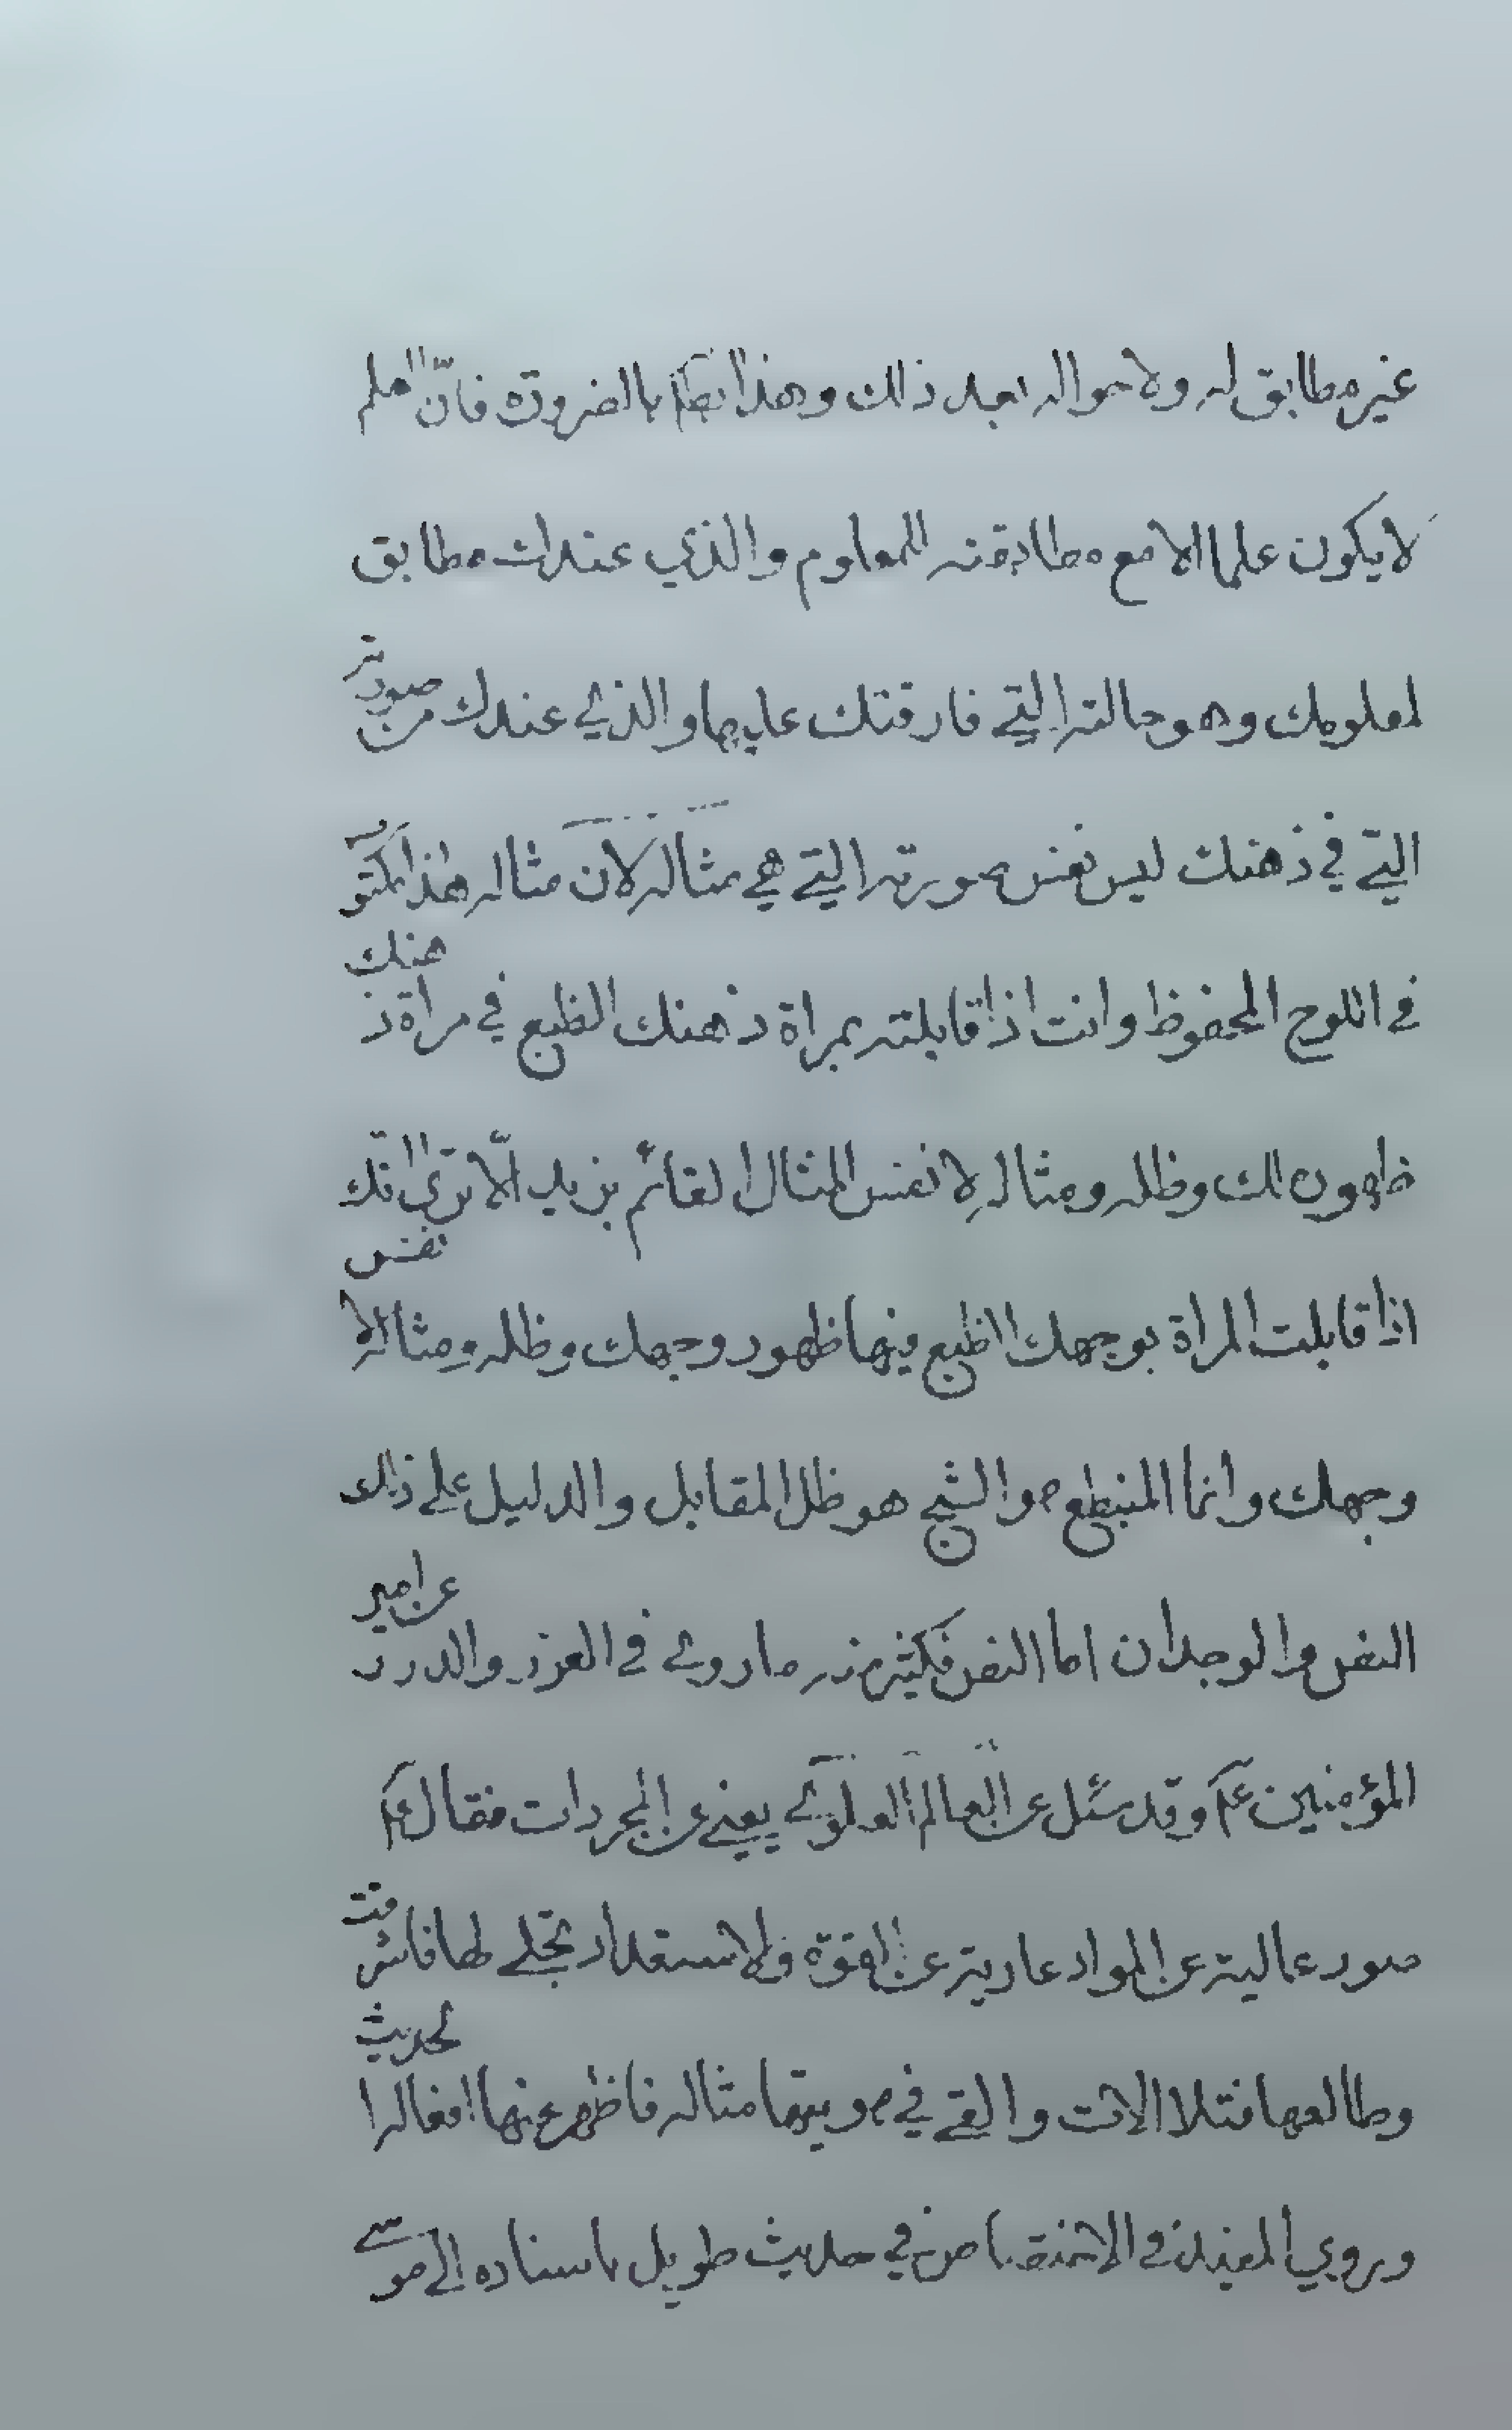 غير مطابق له ولاحواله بعد ذلك وهذا بط بالضرورة فانّ العلم
لا يكون علما الا مع مطابقته للمعلوم والذي عندك مطابق
لمعلومك وهو حالته التي فارقتك عليها والذي عندك من صورته
التي في ذهنك ليس نفس صورته التي هي مثاله لان مثاله هذا المكتوب
في اللوح المحفوظ وانت اذا قابلته بمراة ذهنك انطبع في مراة ذهنك
ظهوره لك وظله ومثاله لا نفس المثال القائم بزيد الّا ترى انّك
اذا قابلت المراة بوجهك انطبع فيها ظهور وجهك وظله ومثاله لا نفس
وجهك وانما المنطبع هو الشبح هو ظل المقابل والدليل على ذلك
النص والوجدان اما النص فكثير منه ما روى في الغرر والدرر عن امير
المؤمنين عم وقد سئل عن العالم العلوى يعني عن المجردات فقال عم
صور عالية عن المواد عارية عن القوة والاستعداد تجلى لها فاشرقت
وطالعها فتلاالات والقى في هويتها مثاله فاظهر عنها افعاله الحديث
وروي المفيد في الاختصاص في حديث طويل باسناده الى موسى